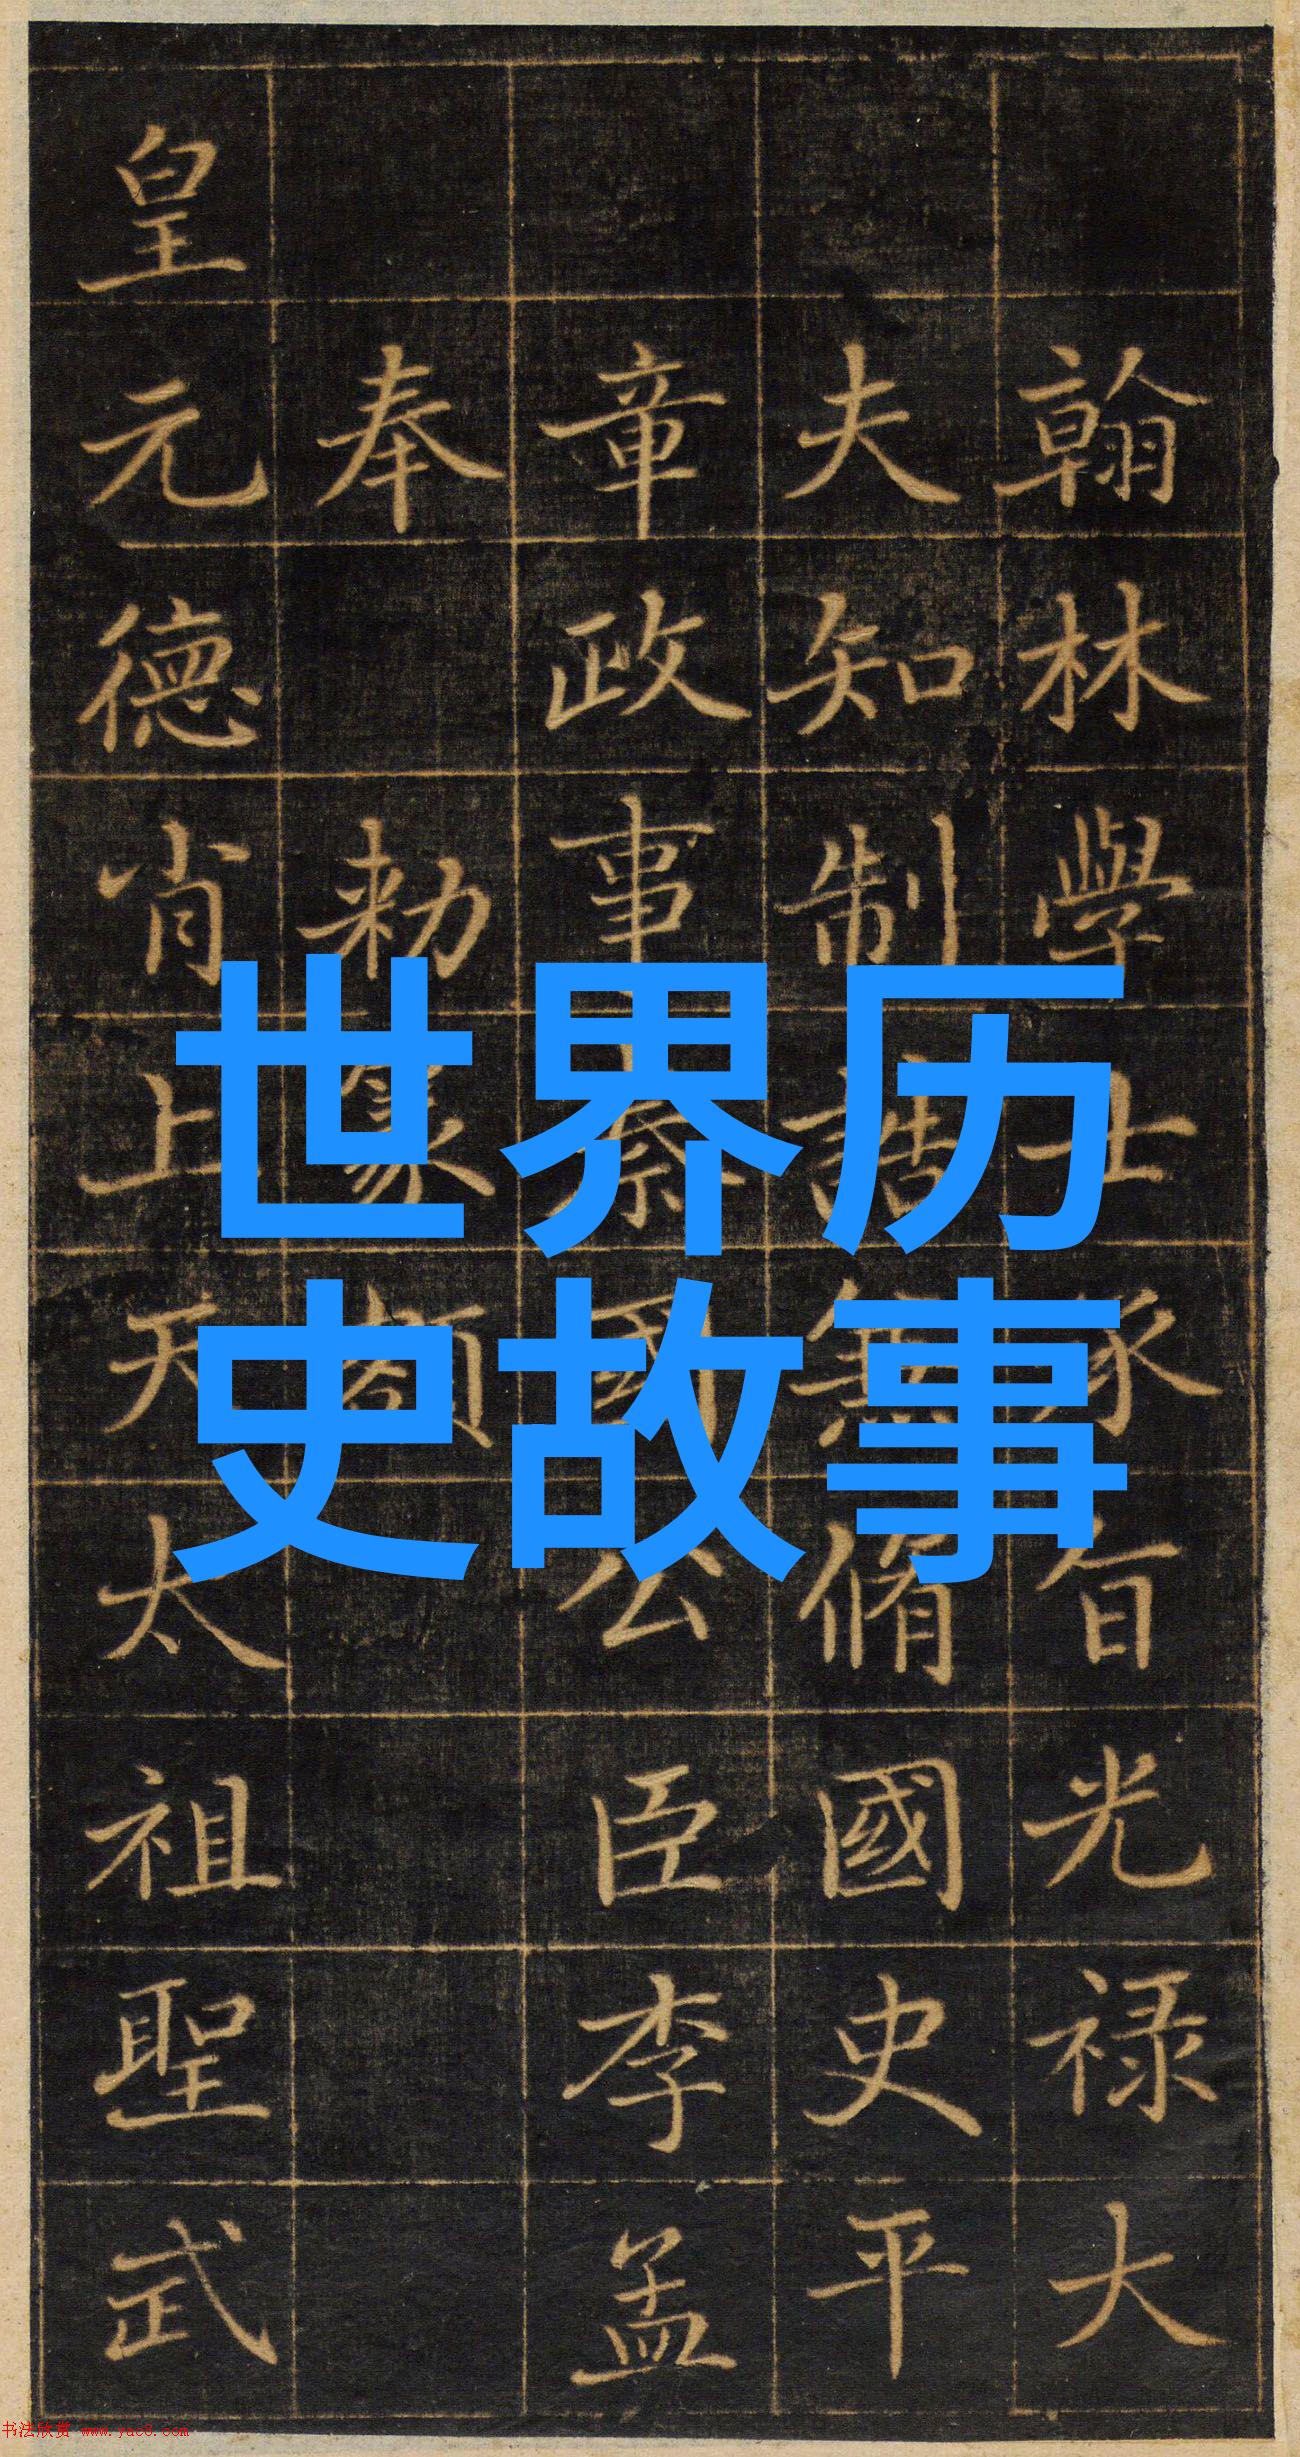 世界历
史故事
翰林學士承旨光禄大
夫知制誥兼脩國史平
章政事秦國公臣李孟
奉 勑篆額
皇元德肖上天太祖聖武
书法欣赏 www.yac8.com